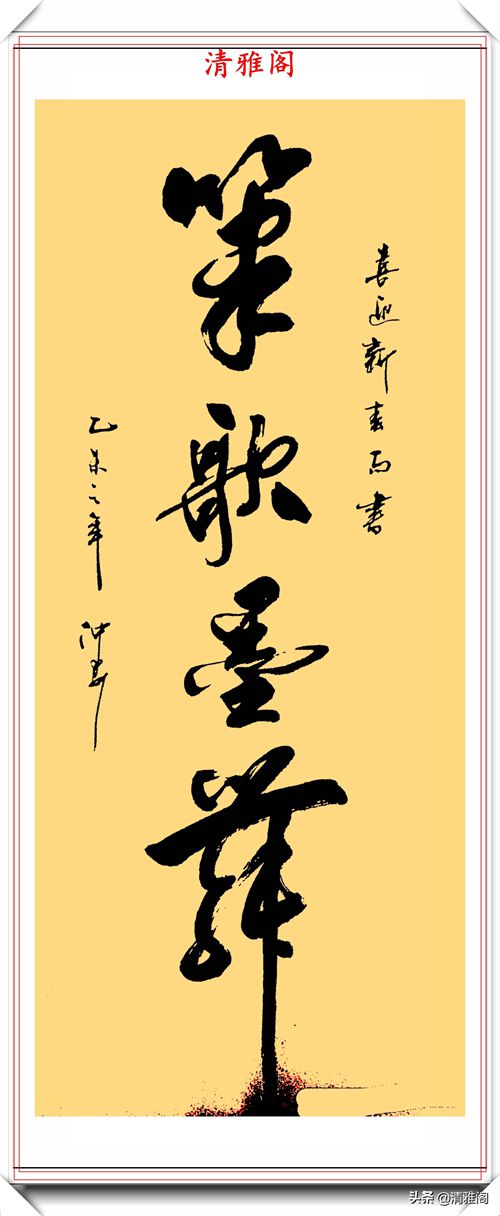 清雅阁
喜迎新春而書
筆歌墨舞
乙未之年
头条 @清雅阁